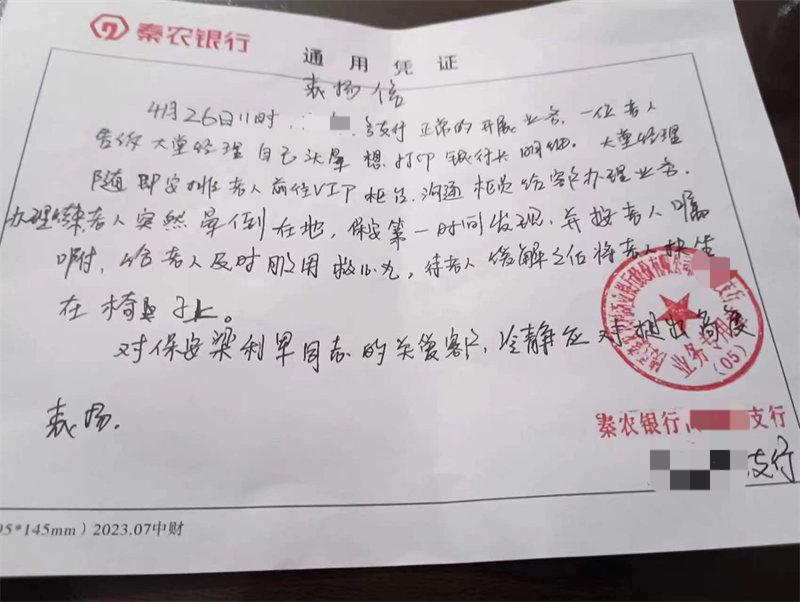 秦农银行
通用凭证
表扬信
4月26日11时,支行正常的开展业务,一位老人
告诉大堂经理自己头晕想打印银行卡明细。大堂经理
随即安排老人前往VIP柜台,沟通柜员给客户办理业务。
办理结束老人突然晕倒在地,保安第一时间发现,并按老人嘱
咐,给老人及时服用救心丸,待老人缓解之后将老人扶坐
在椅子上。
对保安梁利军同志的关爱客户,冷静应对提出高度
表扬。
业务专用章
(05)
秦农银行 支行
支行
95*145mm)2023.07中财